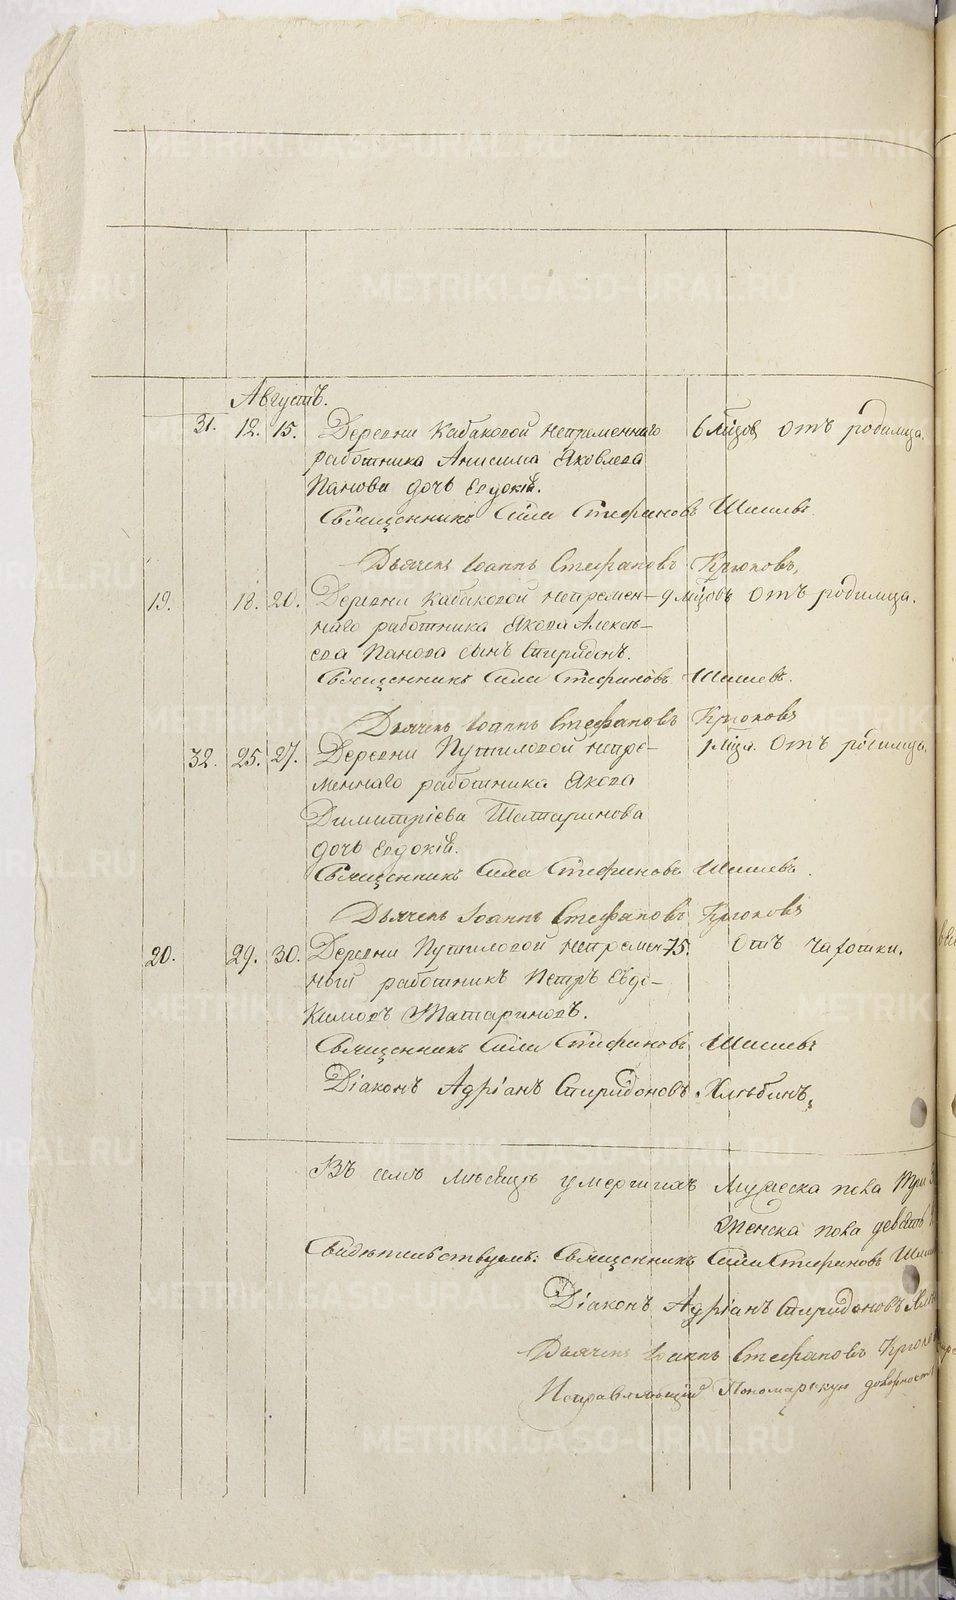 Августъ.
31. 12. 15. Деревни Кабаковой непременнаго 6 мцов отъ родимца.
работника Анисима Яковлева
Панова дочь Евдокія.
Священникъ Сила Стефановъ Шишевъ
Дьячекъ Іоаннъ Стефановъ Крюковъ,
19. 18. 20. Деревни Кабаковой непремен- 9 мцовъ отъ родимца.
наго работника Якова Алексѣ-
ева Панова сынъ Спиридонъ.
Священникъ Сила Стефановъ Шишевъ.
Дьячекъ Іоаннъ Стефановъ Крюковъ
32. 25. 27. Деревни Путиловой непре- отъ родимца.
меннаго работника Якова
Димитріева Татаринова
дочь Евдокія.
Священникъ Сила Стефановъ Шишевъ.
Дьячекъ Іоаннъ Стефановъ Крюковъ
20. 29. 30. Деревни Путиловой непремен 75. отъ чахотки.
ный работникъ Петръ Евдо-
кимовъ Татариновъ.
Священникъ Сила Стефановъ Шишевъ
Діаконъ Адріанъ Спиридоновъ Хлѣбинъ,
Въ семъ мѣсяцѣ умершихъ Мужеска пола три
Женска пола девять
Свидѣтельствуемъ: Священникъ Сила Стефановъ
Діаконъ Адріанъ Спиридоновъ
Дьячекъ Іоаннъ Стефановъ
Исправляющій Пономарскую должность
METRIKI.GASO-URAL.RU